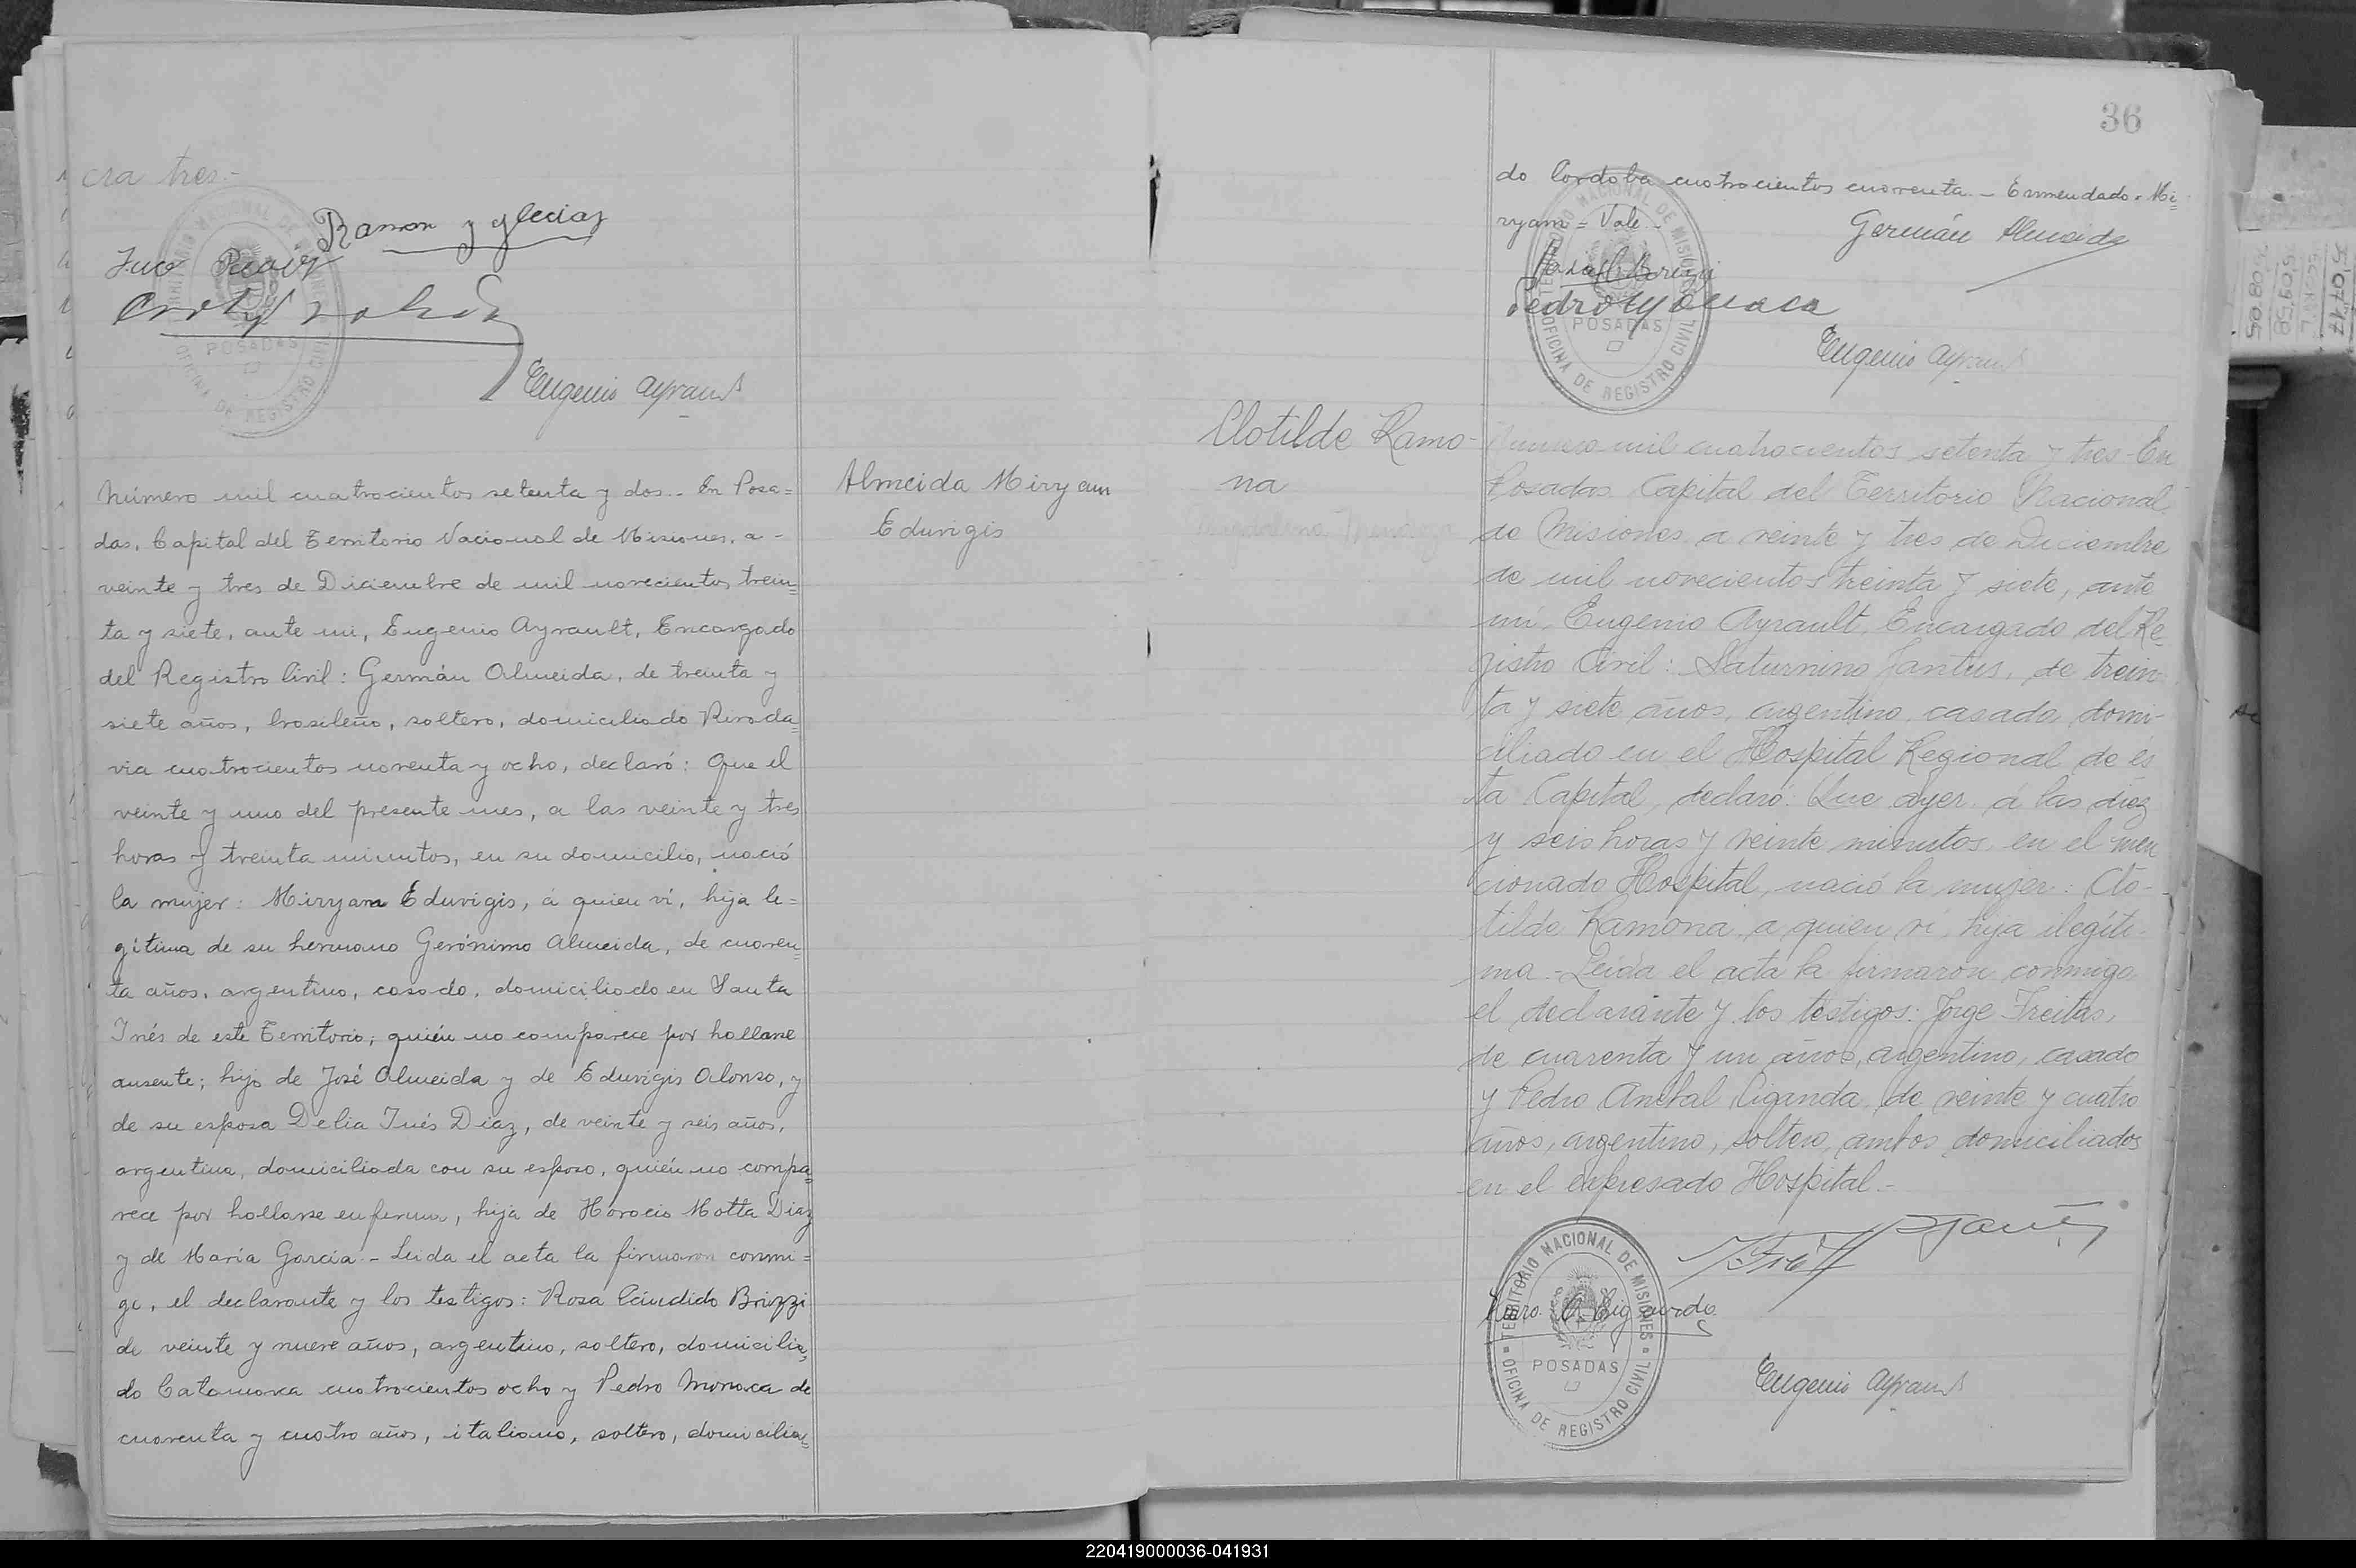 cra tres.-
Ramon Yglecias
Eugenio Ayrault
TERRITORIO NACIONAL DE MISIONES
POSADAS
OFICINA DE REGISTRO CIVIL
Número mil cuatrocientos setenta y dos.- En Posa=
das, Capital del Territorio Nacional de Misiones, a-
veinte y tres de Diciembre de mil novecientos trein=
ta y siete, ante mi, Eugenio Ayrault, Encargado
del Registro Civil: Germán Almeida, de treinta y
siete años, brasileño, soltero, domiciliado Rivada
via cuatrocientos noventa y ocho, declaró: Que el
veinte y uno del presente mes, a las veinte y tres
horas y treinta minutos, en su domicilio, nació
la mujer: Miryam Eduvigis, á quien ví, hija le=
gítima de su hermano Gerónimo Almeida, de cuaren=
ta años, argentino, casado, domiciliado en Santa
Inés de este Territorio; quién no comparece por hallarse
ausente; hijo de José Almeida y de Eduvigis Alonso, y
de su esposa Delia Inés Diaz, de veinte y seis años,
argentina, domiciliada con su esposo, quién no compa=
rece por hallarse enferma, hija de Horacio Motta Diaz
y de María García.- Leida el acta la firmaron conmi=
go, el declarante y los testigos: Rosa Cándido Brizzi
de veinte y nueve años, argentino, soltero, domicilia=
do Catamarca cuatrocientos ocho y Pedro Monaca de
cuarenta y cuatro años, italiano, soltero, domicilia=
Almeida Miryam
Eduvigis
36
do Cordoba cuatrocientos cuarenta.- Enmendado=Mi=
ryam=Vale.-
Germán Almeida
Pedro Monaca
Eugenio Ayrault
TERRITORIO NACIONAL DE MISIONES
POSADAS
OFICINA DE REGISTRO CIVIL
Clotilde Ramo-
na
Magdalena Mendoza
Numero mil cuatrocientos setenta y tres-En
Posadas Capital del Territorio Nacional,
de Misiones a veinte y tres de Diciembre
de mil novecientos treinta y siete, ante
mi, Eugenio Ayrault, Encargado del Re
gistro Civil: Saturnino Jantus, de trein-
ta y siete años, argentino, casado, domi-
ciliado en el Hospital Regional de és
ta Capital, declaró: Que ayer á las diez
y seis horas y veinte minutos en el men
cionado Hospital, nació la mujer: Clo-
tilde Ramona, a quien ví, hija ilegíti-
ma.-Leida el acta la firmaron conmigo
el declarante y los testigos: Jorge Freitas,
de cuarenta y un años, argentino, casado
y Pedro Anibal Liganda, de veinte y cuatro
años, argentino, soltero, ambos domiciliados
en el expresado Hospital.-
Eugenio Ayrault
TERRITORIO NACIONAL DE MISIONES
POSADAS
OFICINA DE REGISTRO CIVIL
220419000036-041931